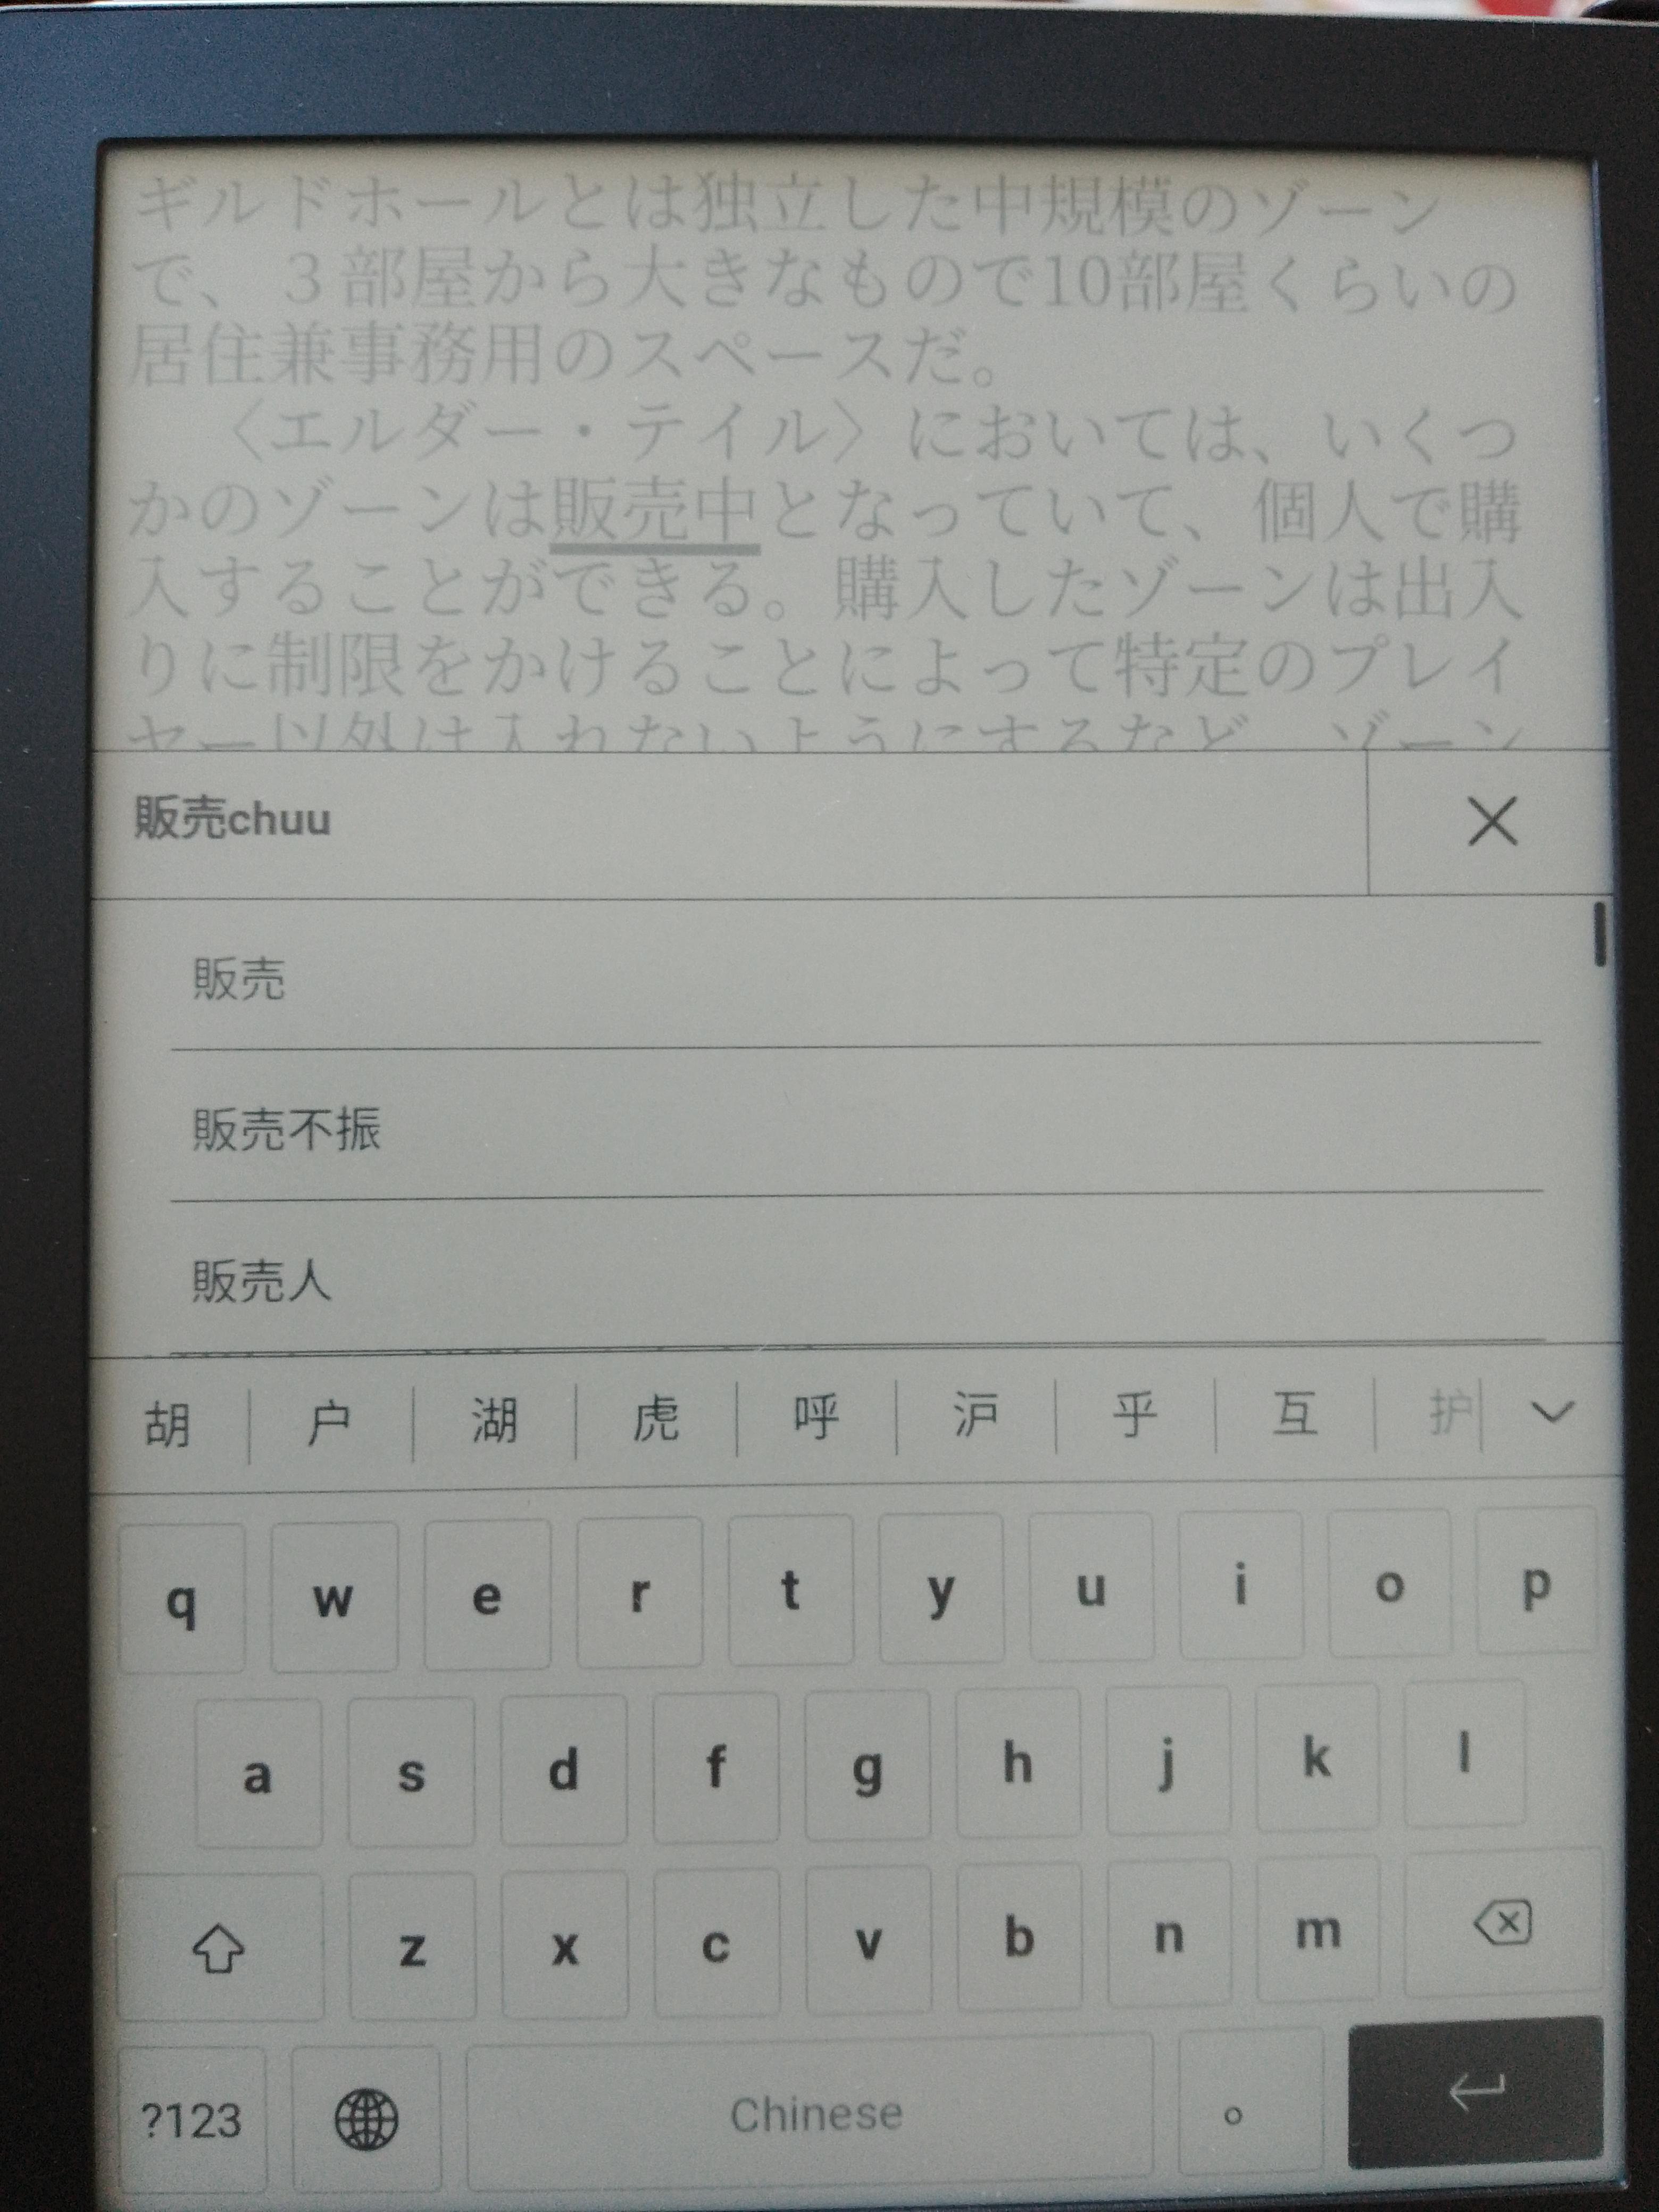 ギルドホールとは独立した中規模のゾーン
で、３部屋から大きなもので10部屋くらいの
居住兼事務用のスペースだ。
〈エルダー・テイル〉においては、いくつ
かのゾーンは販売中となっていて、個人で購
入することができる。購入したゾーンは出入
りに制限をかけることによって特定のプレイ
ヤー以外は入れないようにするなど、ゾーン
販売chuu
販売
販売不振
販売人
胡 户 湖 虎 呼 沪 乎 互 护
q w e r t y u i o p
a s d f g h j k l
z x c v b n m
?123 Chinese 。